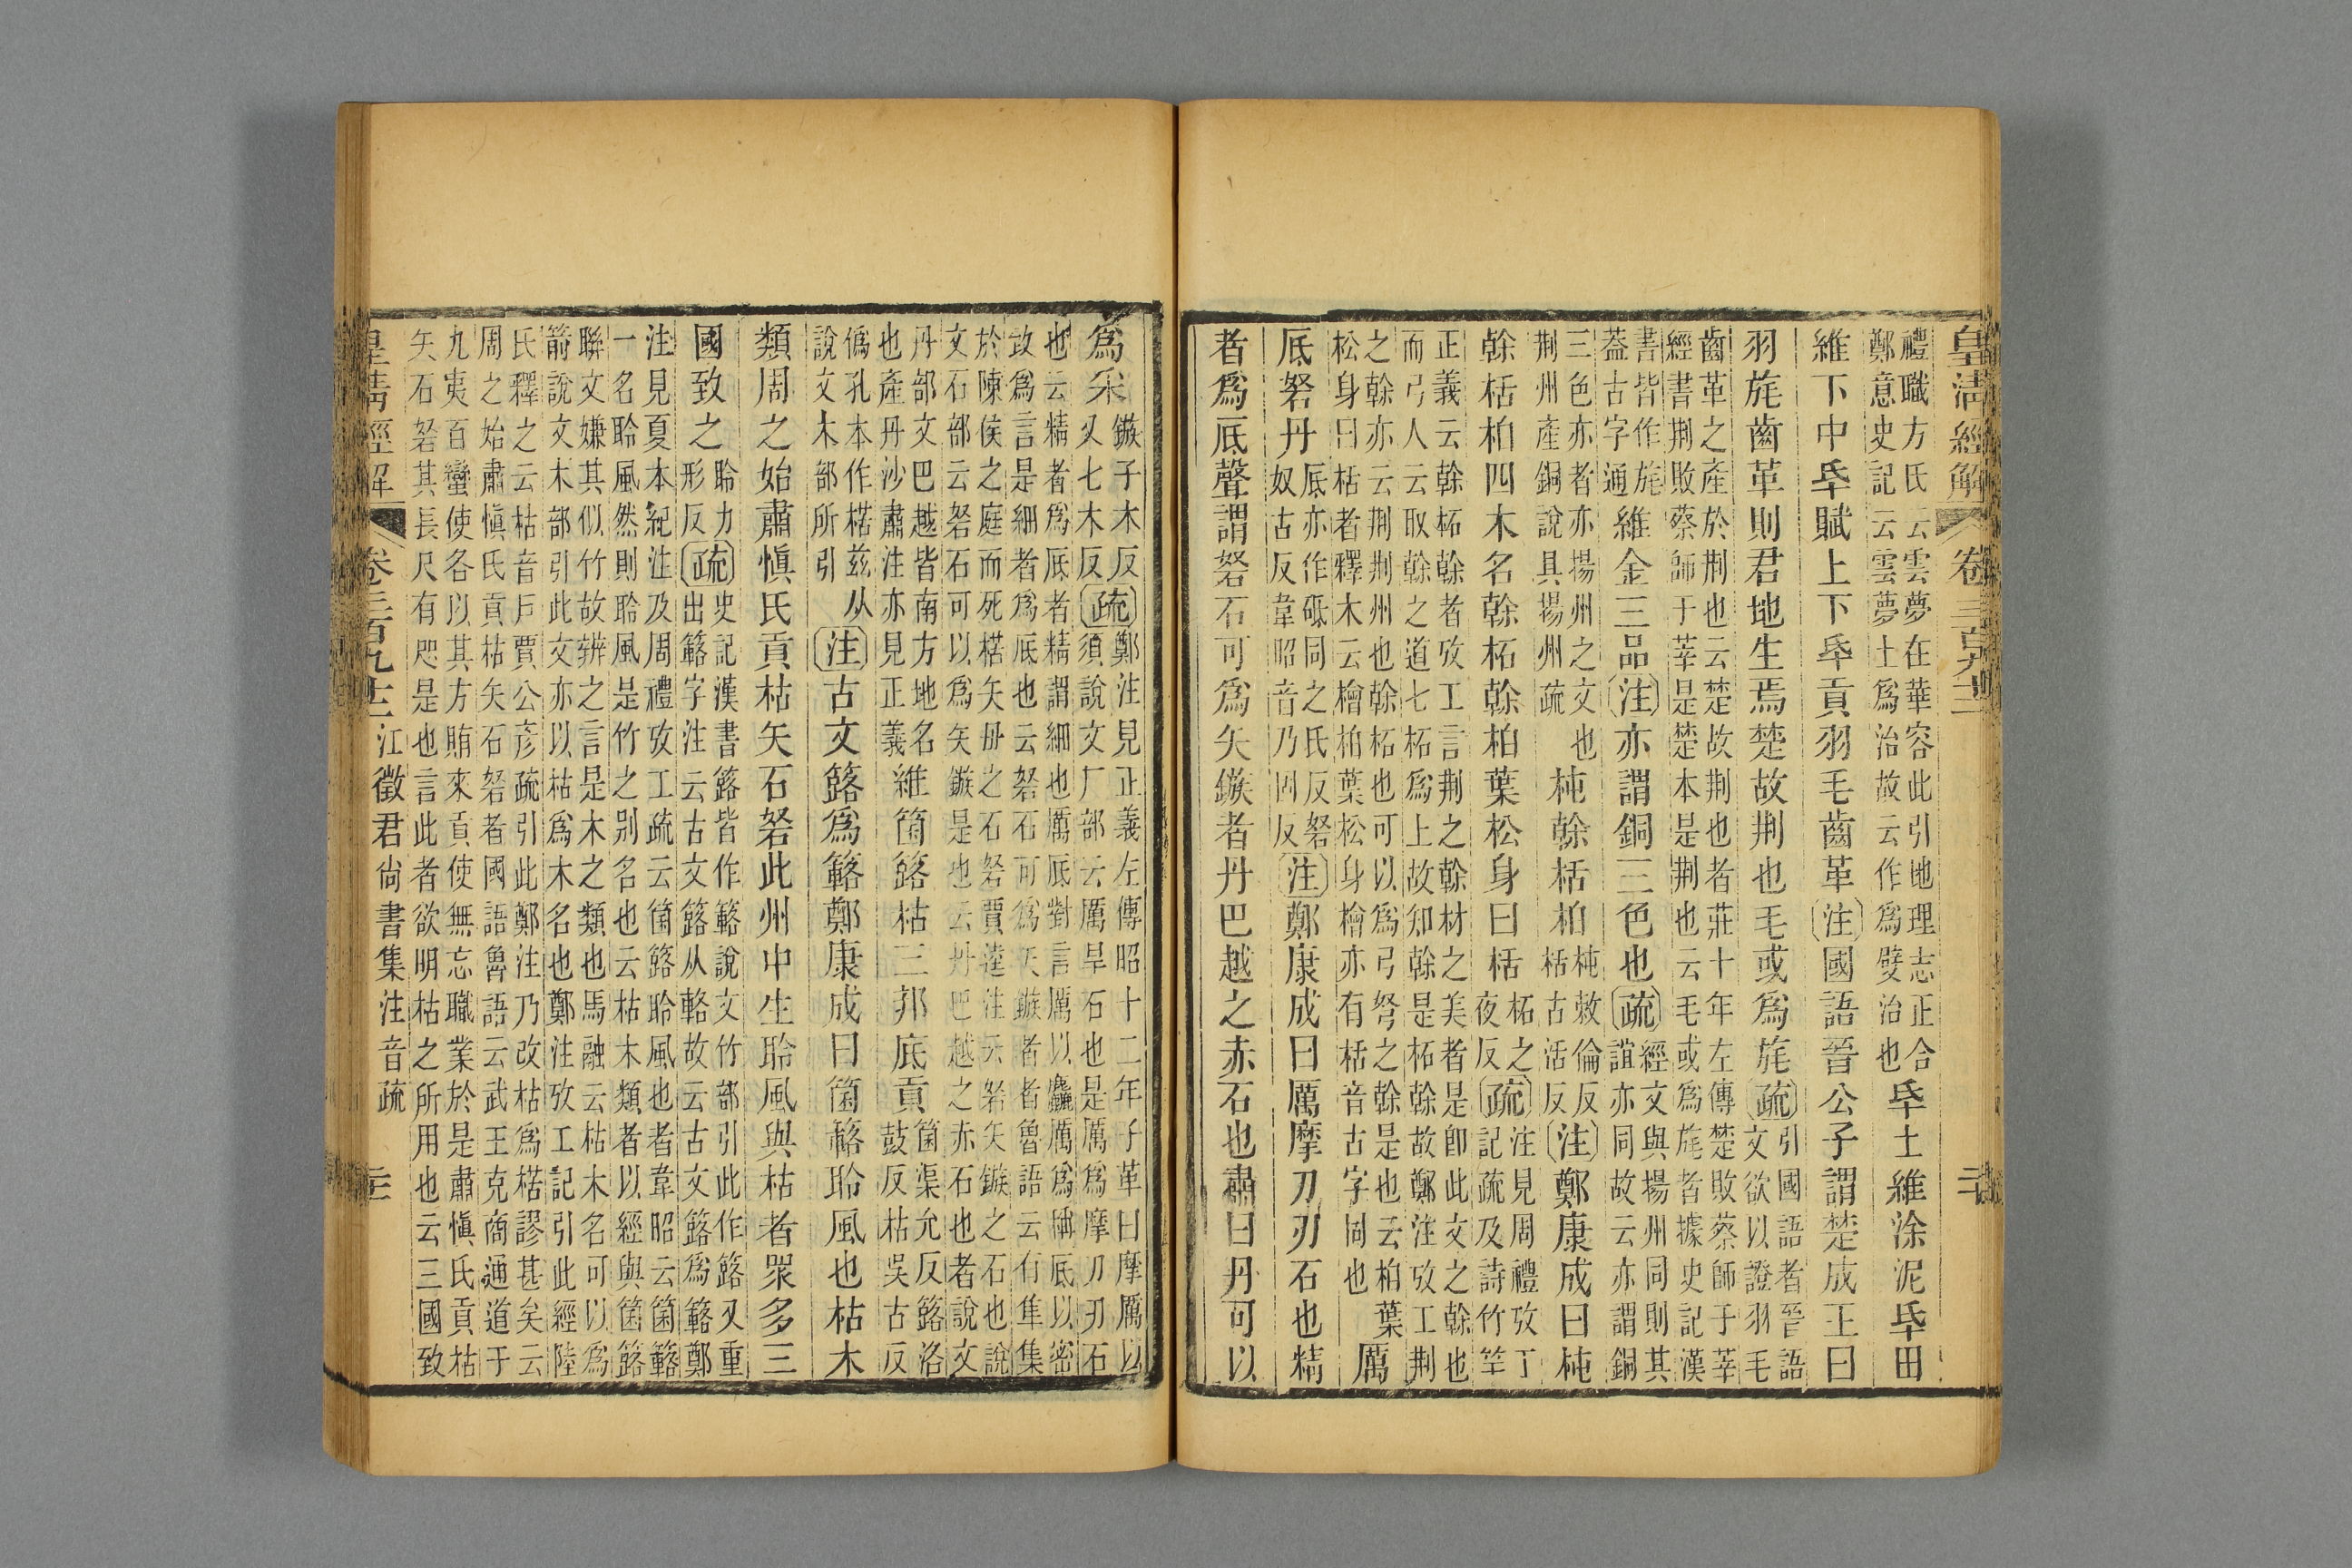 皇淸經解 卷三百九十二
禮職方氏云雲夢在華容此引地理志正合
鄭意史記云雲夢土爲治故云作爲嬖治也
氒土維涂泥氒田
維下中氒賦上下氒貢羽毛齒革注國語晉公子謂楚成王曰
羽旄齒革則君地生焉楚故荆也毛或爲旄疏
引國語者晉語
文欲以證羽毛
齒革之產於荆也云楚故荆也者莊十年左傳楚敗蔡師于莘
經書荆敗蔡師于莘是楚本是荆也云毛或爲旄者據史記漢
書皆作旄
蓋古字通
維金三品注亦謂銅三色也疏
經文與揚州同則其
誼亦同故云亦謂銅
三色亦者亦揚州之文也
荆州產銅說具揚州疏
杶榦栝柏
杶敕倫反
栝古活反
注鄭康成曰杶
榦栝柏四木名榦柘榦柏葉松身曰栝
柘之
夜反
疏
注見周禮攷丁
記疏及詩竹竿
正義云榦柘榦者攷工言荆之榦材之美者是卽此文之榦也
而弓人云取榦之道七柘爲上故知榦是柘榦故鄭注攷工荆
之榦亦云荆荆州也榦柘也可以爲弓弩之榦是也云柏葉
松身曰栝者釋木云檜柏葉松身檜亦有栝音古字同也
厲
厎砮丹
厎亦作砥同之氏反砮
奴古反韋昭音乃固反
注鄭康成曰厲摩刀刃石也精
者爲厎聲謂砮石可爲矢鏃者丹巴越之赤石也肅曰丹可以
爲采
鏃子木反
又七木反
疏
鄭注見正義左傳昭十二年子革曰摩厲以
須說文厂部云厲旱石也是厲爲摩刀刃石
也云精者爲厎者精謂細也厲厎對言厲以麤厲爲稱厎以密
改爲言是細者爲厎也云砮石可爲矢鏃者者魯語云有隼集
於陳侯之庭而死楛矢毌之石砮賈逵注云砮矢鏃之石也說
文石部云砮石可以爲矢鏃是也云丹巴越之赤石也者說文
丹部文巴越皆南方地名
也產丹沙肅注亦見正義
維箘簬枯三邦底貢
箘渠允反簬洛
鼓反枯吳古反
僞孔本作楛兹从
說文木部所引
注古文簬爲簵鄭康成曰箘簵聆風也枯木
類周之始肅愼氏貢枯矢石砮此州中生聆風與枯者眾多三
國致之
聆力
形反
疏
史記漢書簬皆作簵說文竹部引此作簬又重
出簵字注云古文簬从輅故云古文簬爲簵鄭
注見夏本紀注及周禮攷工疏云箘簬聆風也者韋昭云箘簵
一名聆風然則聆風是竹之別名也云枯木類者以經與箘簬
聯文嫌其似竹故辨之言是木之類也馬融云枯木名可以爲
箭說文木部引此文亦以枯爲木名也鄭注攷工記引此經陸
氏釋之云枯音戶賈公彥疏引此鄭注乃改枯爲楛謬甚矣云
周之始肅愼氏貢枯矢石砮者國語魯語云武王克商通道于
九夷百蠻使各以其方賄來貢使無忘職業於是肅愼氏貢枯
矢石砮其長尺有咫是也言此者欲明枯之所用也云三國致
皇淸經解 卷三百九十二 江徵君尚書集注音疏